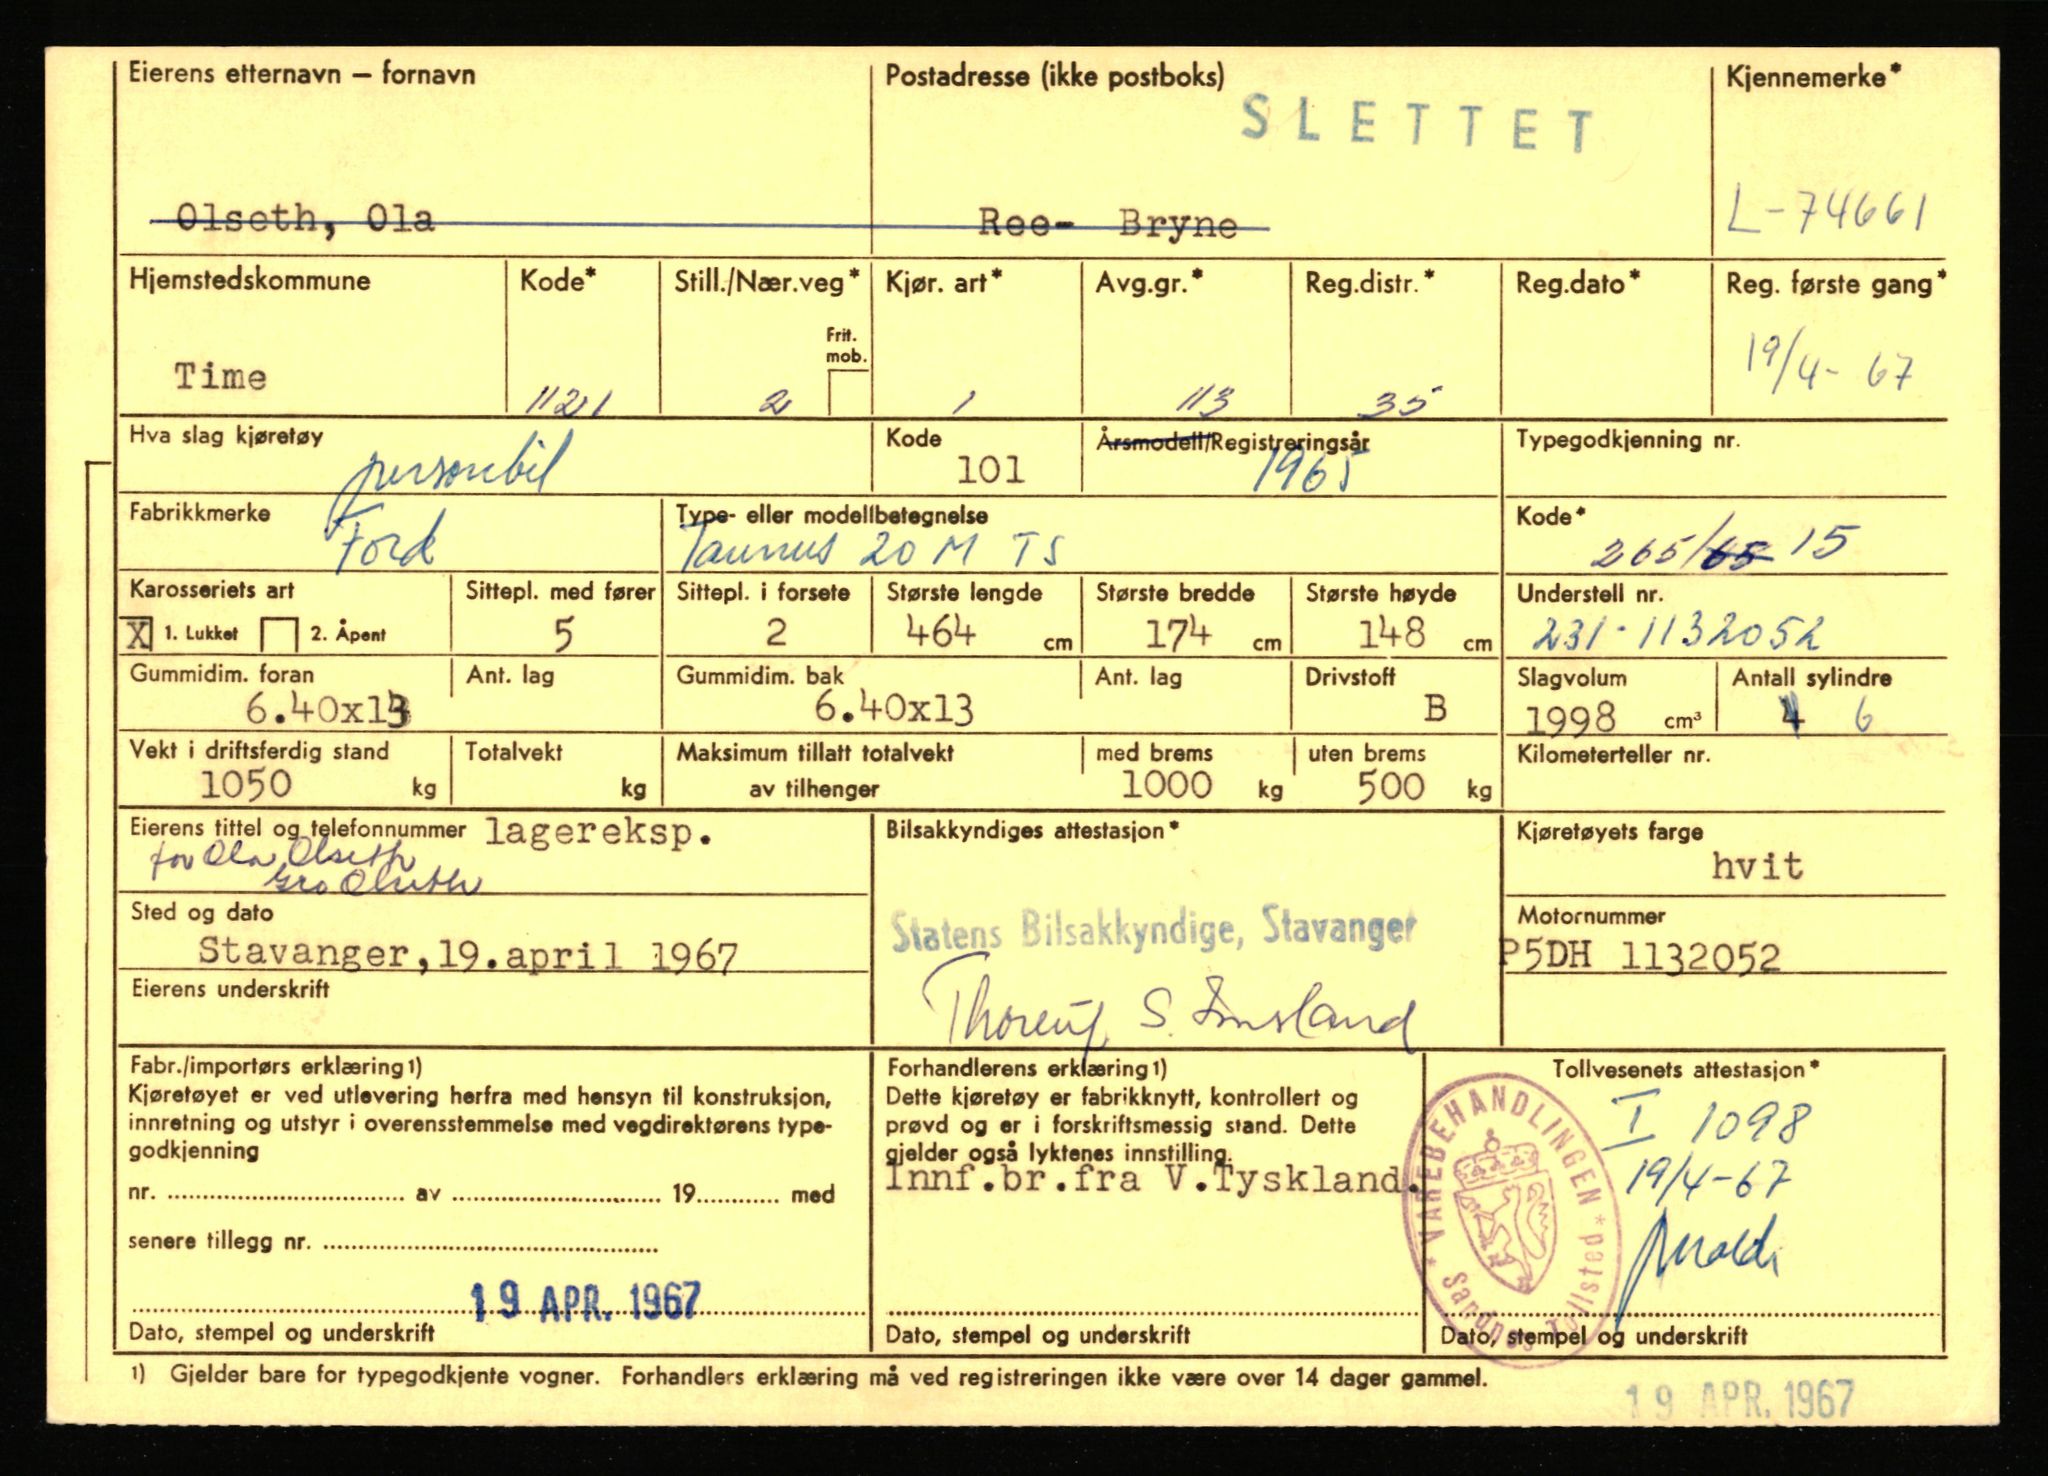 Eierens etternavn — fornavn
Postadresse (ikke postboks)
Kjennemerke*
SLETTET
Olseth, Ola
Ree- Bryne
L-74661
Hjemstedskommune
Kode*
Still./Nær.veg*
Kjør. art*
Avg.gr.*
Reg.distr.*
Reg.dato*
Reg. første gang*
Frit. mob.
Time
1121
2
1
113
35
19/4- 67
Hva slag kjøretøy
personbil
Kode
101
Årsmodell/Registreringsår
1965
Typegodkjenning nr.
Fabrikkmerke
Ford
Type- eller modellbetegnelse
Taunus 20 M TS
Kode*
265/65 15
Karosseriets art
X 1. Lukket 2. Åpent
Sittepl. med fører
5
Sittepl. i forsete
2
Største lengde
464 cm
Største bredde
174 cm
Største høyde
148 cm
Understell nr.
231-1132052
Gummidim. foran
6.40x13
Ant. lag
Gummidim. bak
6.40x13
Ant. lag
Drivstoff
B
Slagvolum
1998 cm³
Antall sylindre
4 6
Vekt i driftsferdig stand
1050 kg
Totalvekt
kg
Maksimum tillatt totalvekt
av tilhenger
med brems
1000 kg
uten brems
500 kg
Kilometerteller nr.
Eierens tittel og telefonnummer lagereksp.
for Ola Olseth
Gro Olseth
Bilsakkyndiges attestasjon*
Kjøretøyets farge
hvit
Sted og dato
Stavanger,19.april 1967
Statens Bilsakkyndige, Stavanger
Motornummer
P5DH 1132052
Eierens underskrift
Fabr./importørs erklæring1)
Kjøretøyet er ved utlevering herfra med hensyn til konstruksjon,
innretning og utstyr i overensstemmelse med vegdirektørens type-
godkjenning
nr. .......... av .......... 19.......... med
senere tillegg nr. ..........
19 APR. 1967
Dato, stempel og underskrift
Forhandlerens erklæring1)
Dette kjøretøy er fabrikknytt, kontrollert og
prøvd og er i forskriftsmessig stand. Dette
gjelder også lyktenes innstilling.
Innf.br.fra V.Tyskland.
Dato, stempel og underskrift
Tollvesenets attestasjon*
I 1098
19/4-67
* VAREBEHANDLINGEN * Sandnes Tollsted
Dato, stempel og underskrift
1) Gjelder bare for typegodkjente vogner. Forhandlers erklæring må ved registreringen ikke være over 14 dager gammel.
19 APR. 1967